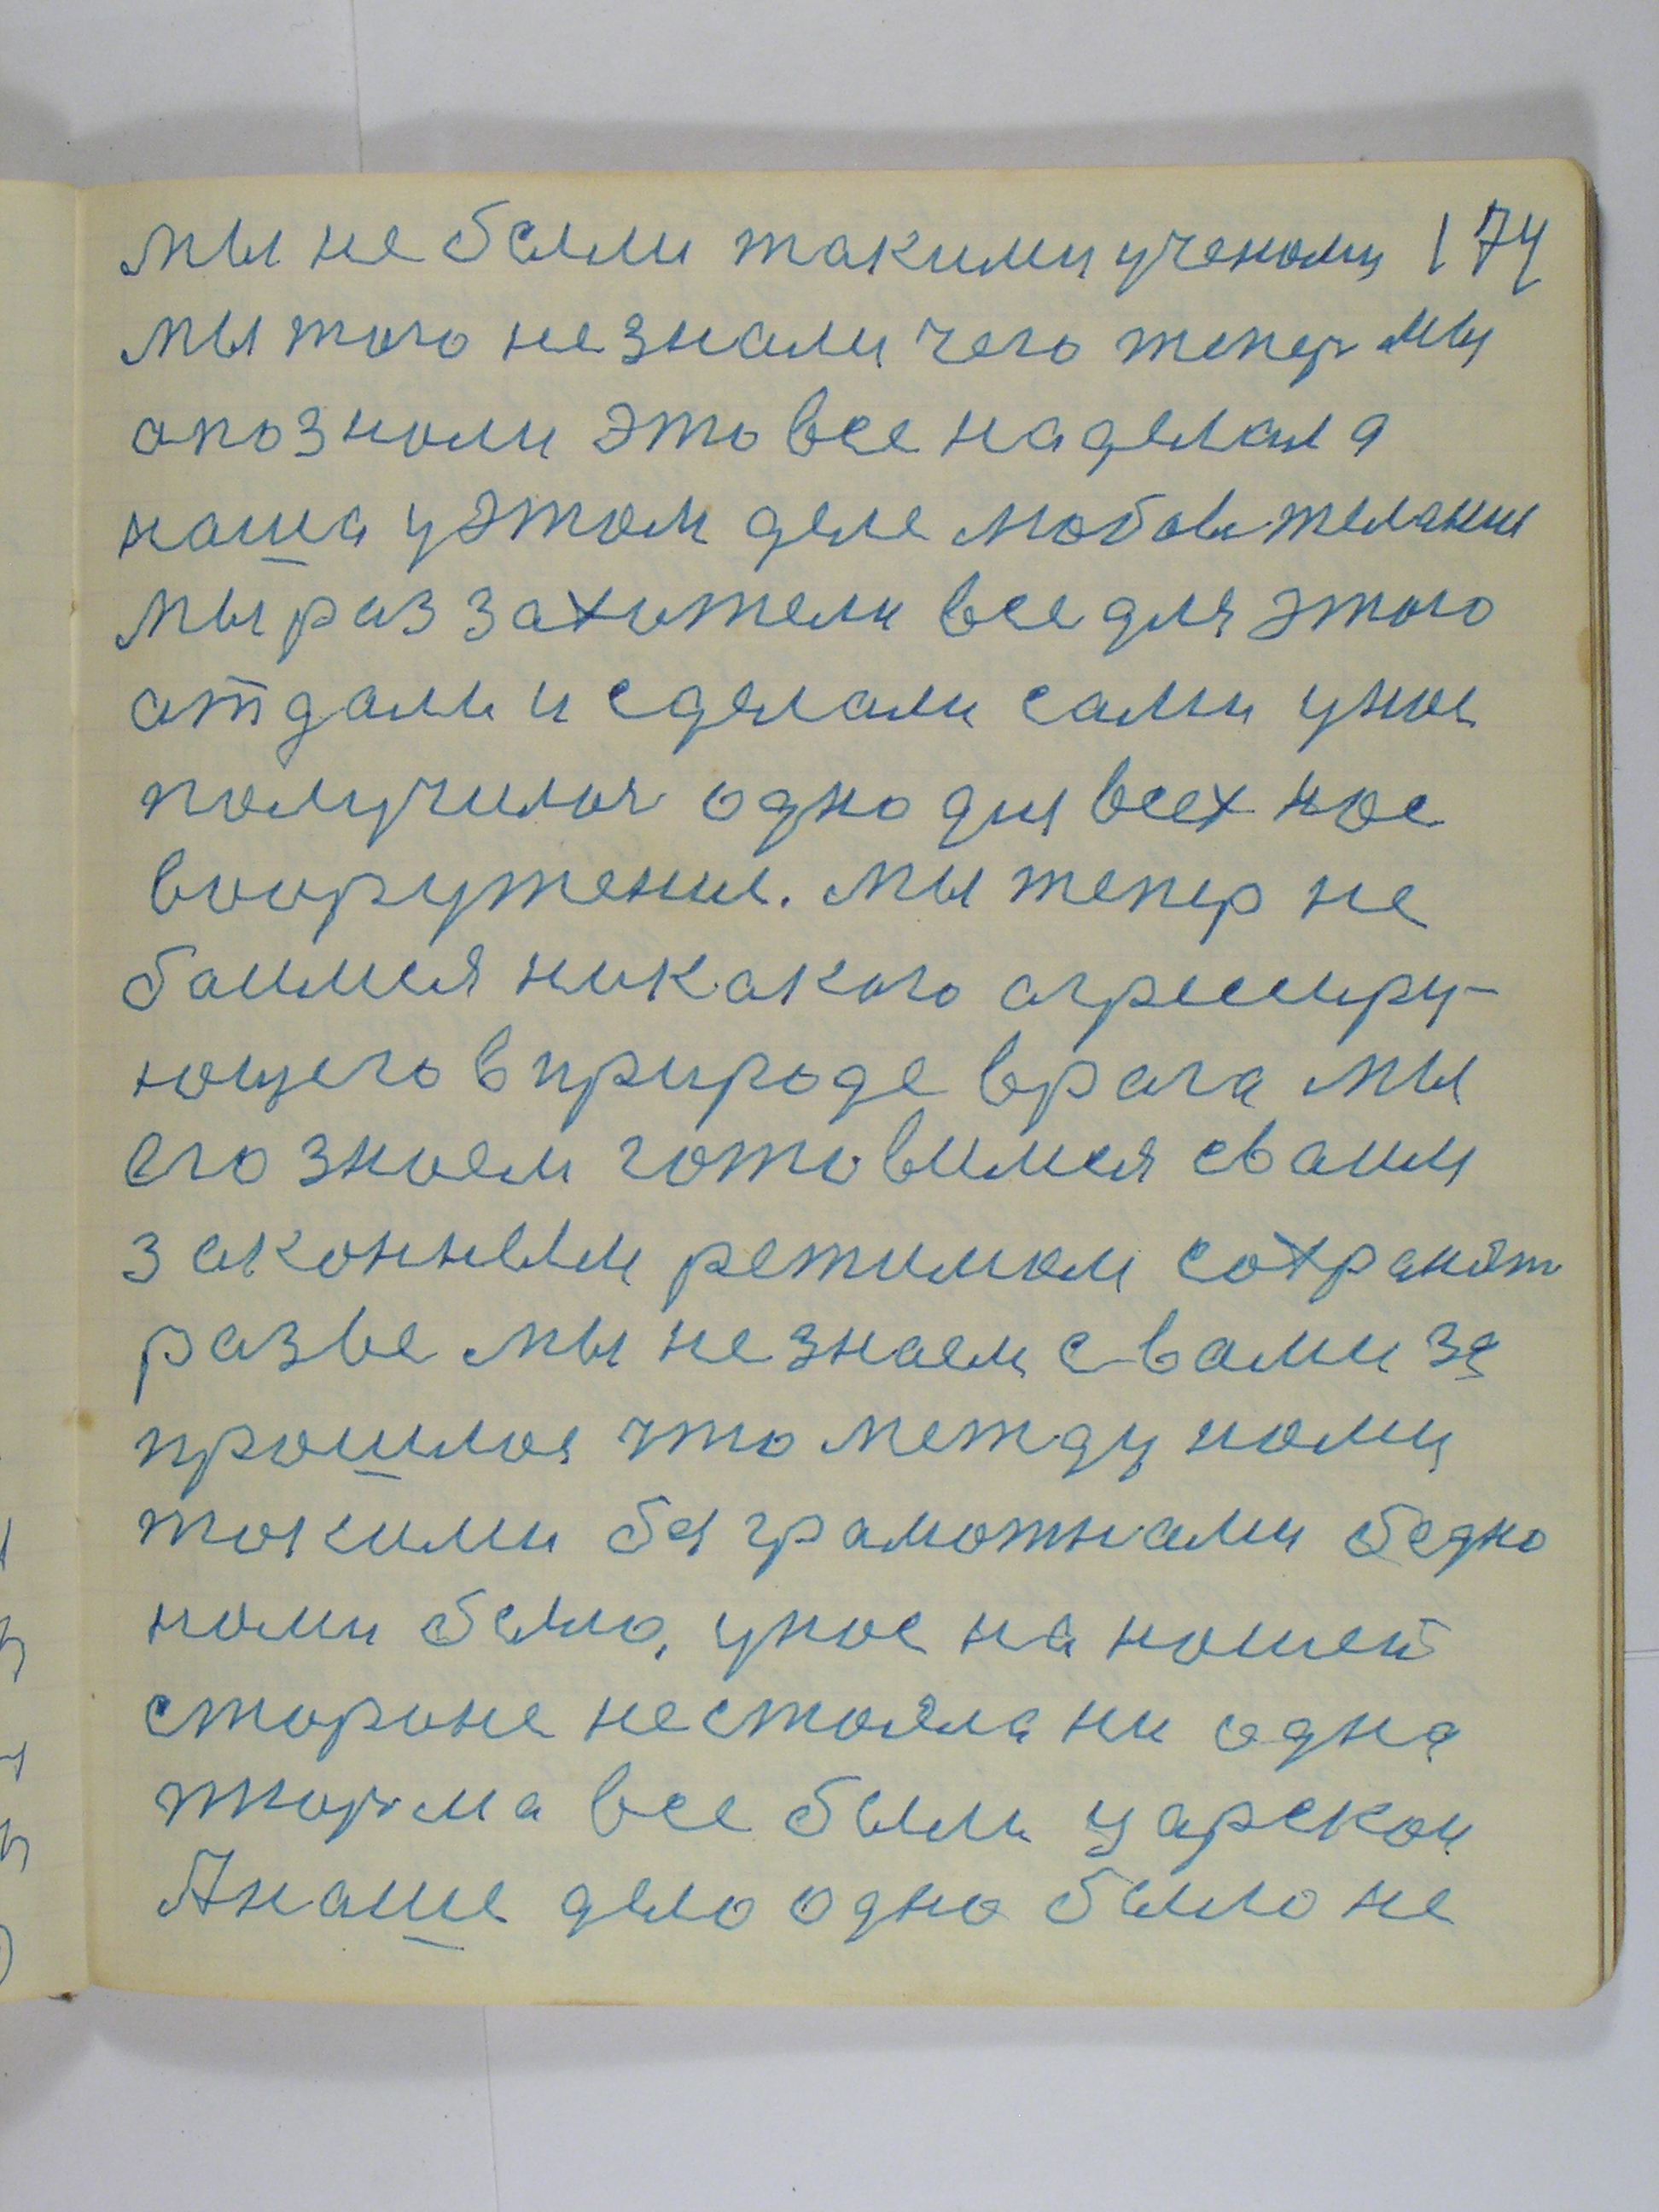 мы не были такими учеными 174
мы того не знали чего тепер мы
опознали это все наделала
наша у этом деле любов желание
мы раз захотели все для этого
атдали и сделали сами у нас
получилося одно для всех нас
вооружение. мы тепер не
баимся никакого агрессиру-
ющего в природе врага мы
его знаем готовимся сваим
законным режимом сохранят
разве мы не знаем с вами за
прошлое что между нами
такими безграмотнами бедно
нами было, у нас на нашей
стороне не стояла ни одна
тюрма все были царскои
А наше дело одно было не